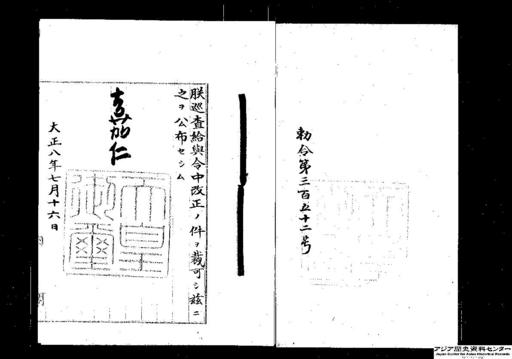 勅令第三百五十二号
朕巡査給與令中改正ノ件ヲ裁可シ茲ニ
之ヲ公布セシム
嘉仁
天皇御璽
大正八年七月十六日
アジア歴史資料センター
Japan Center for Asian Historical Records